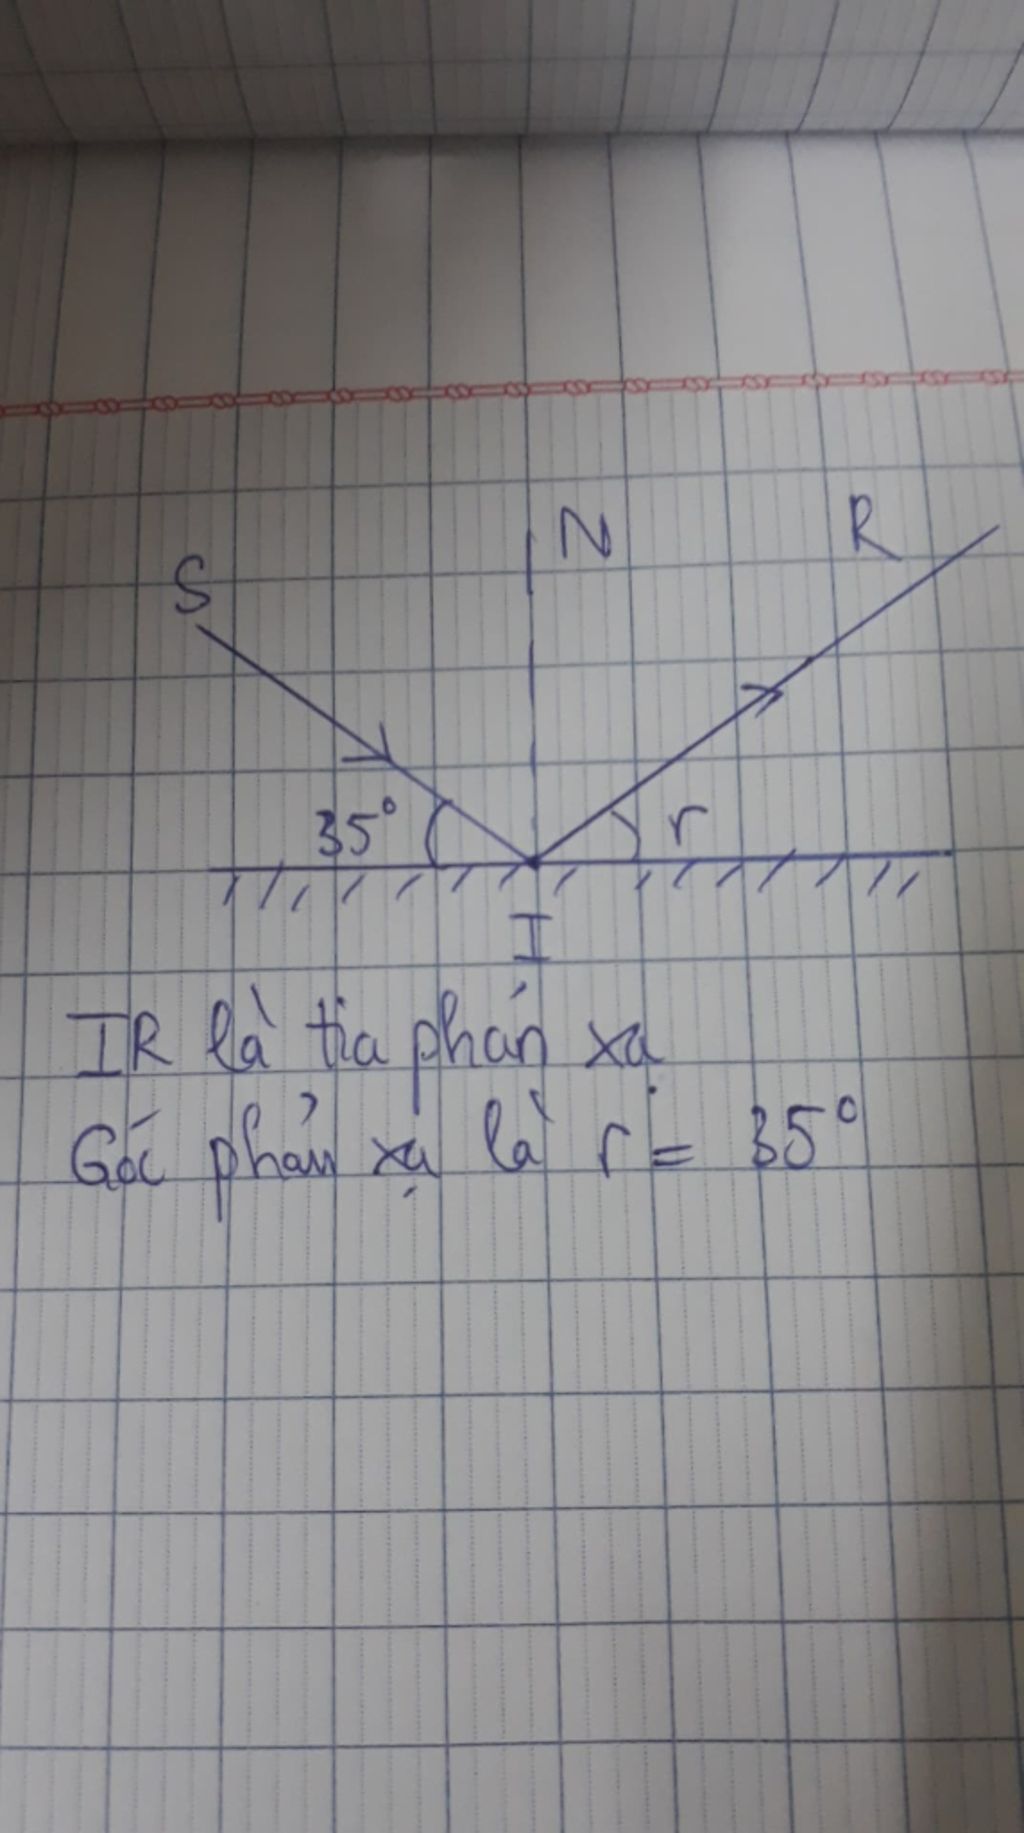 N
R
S
35°
r
I
IR là tia phản xạ
Góc phản xạ là r = 35°